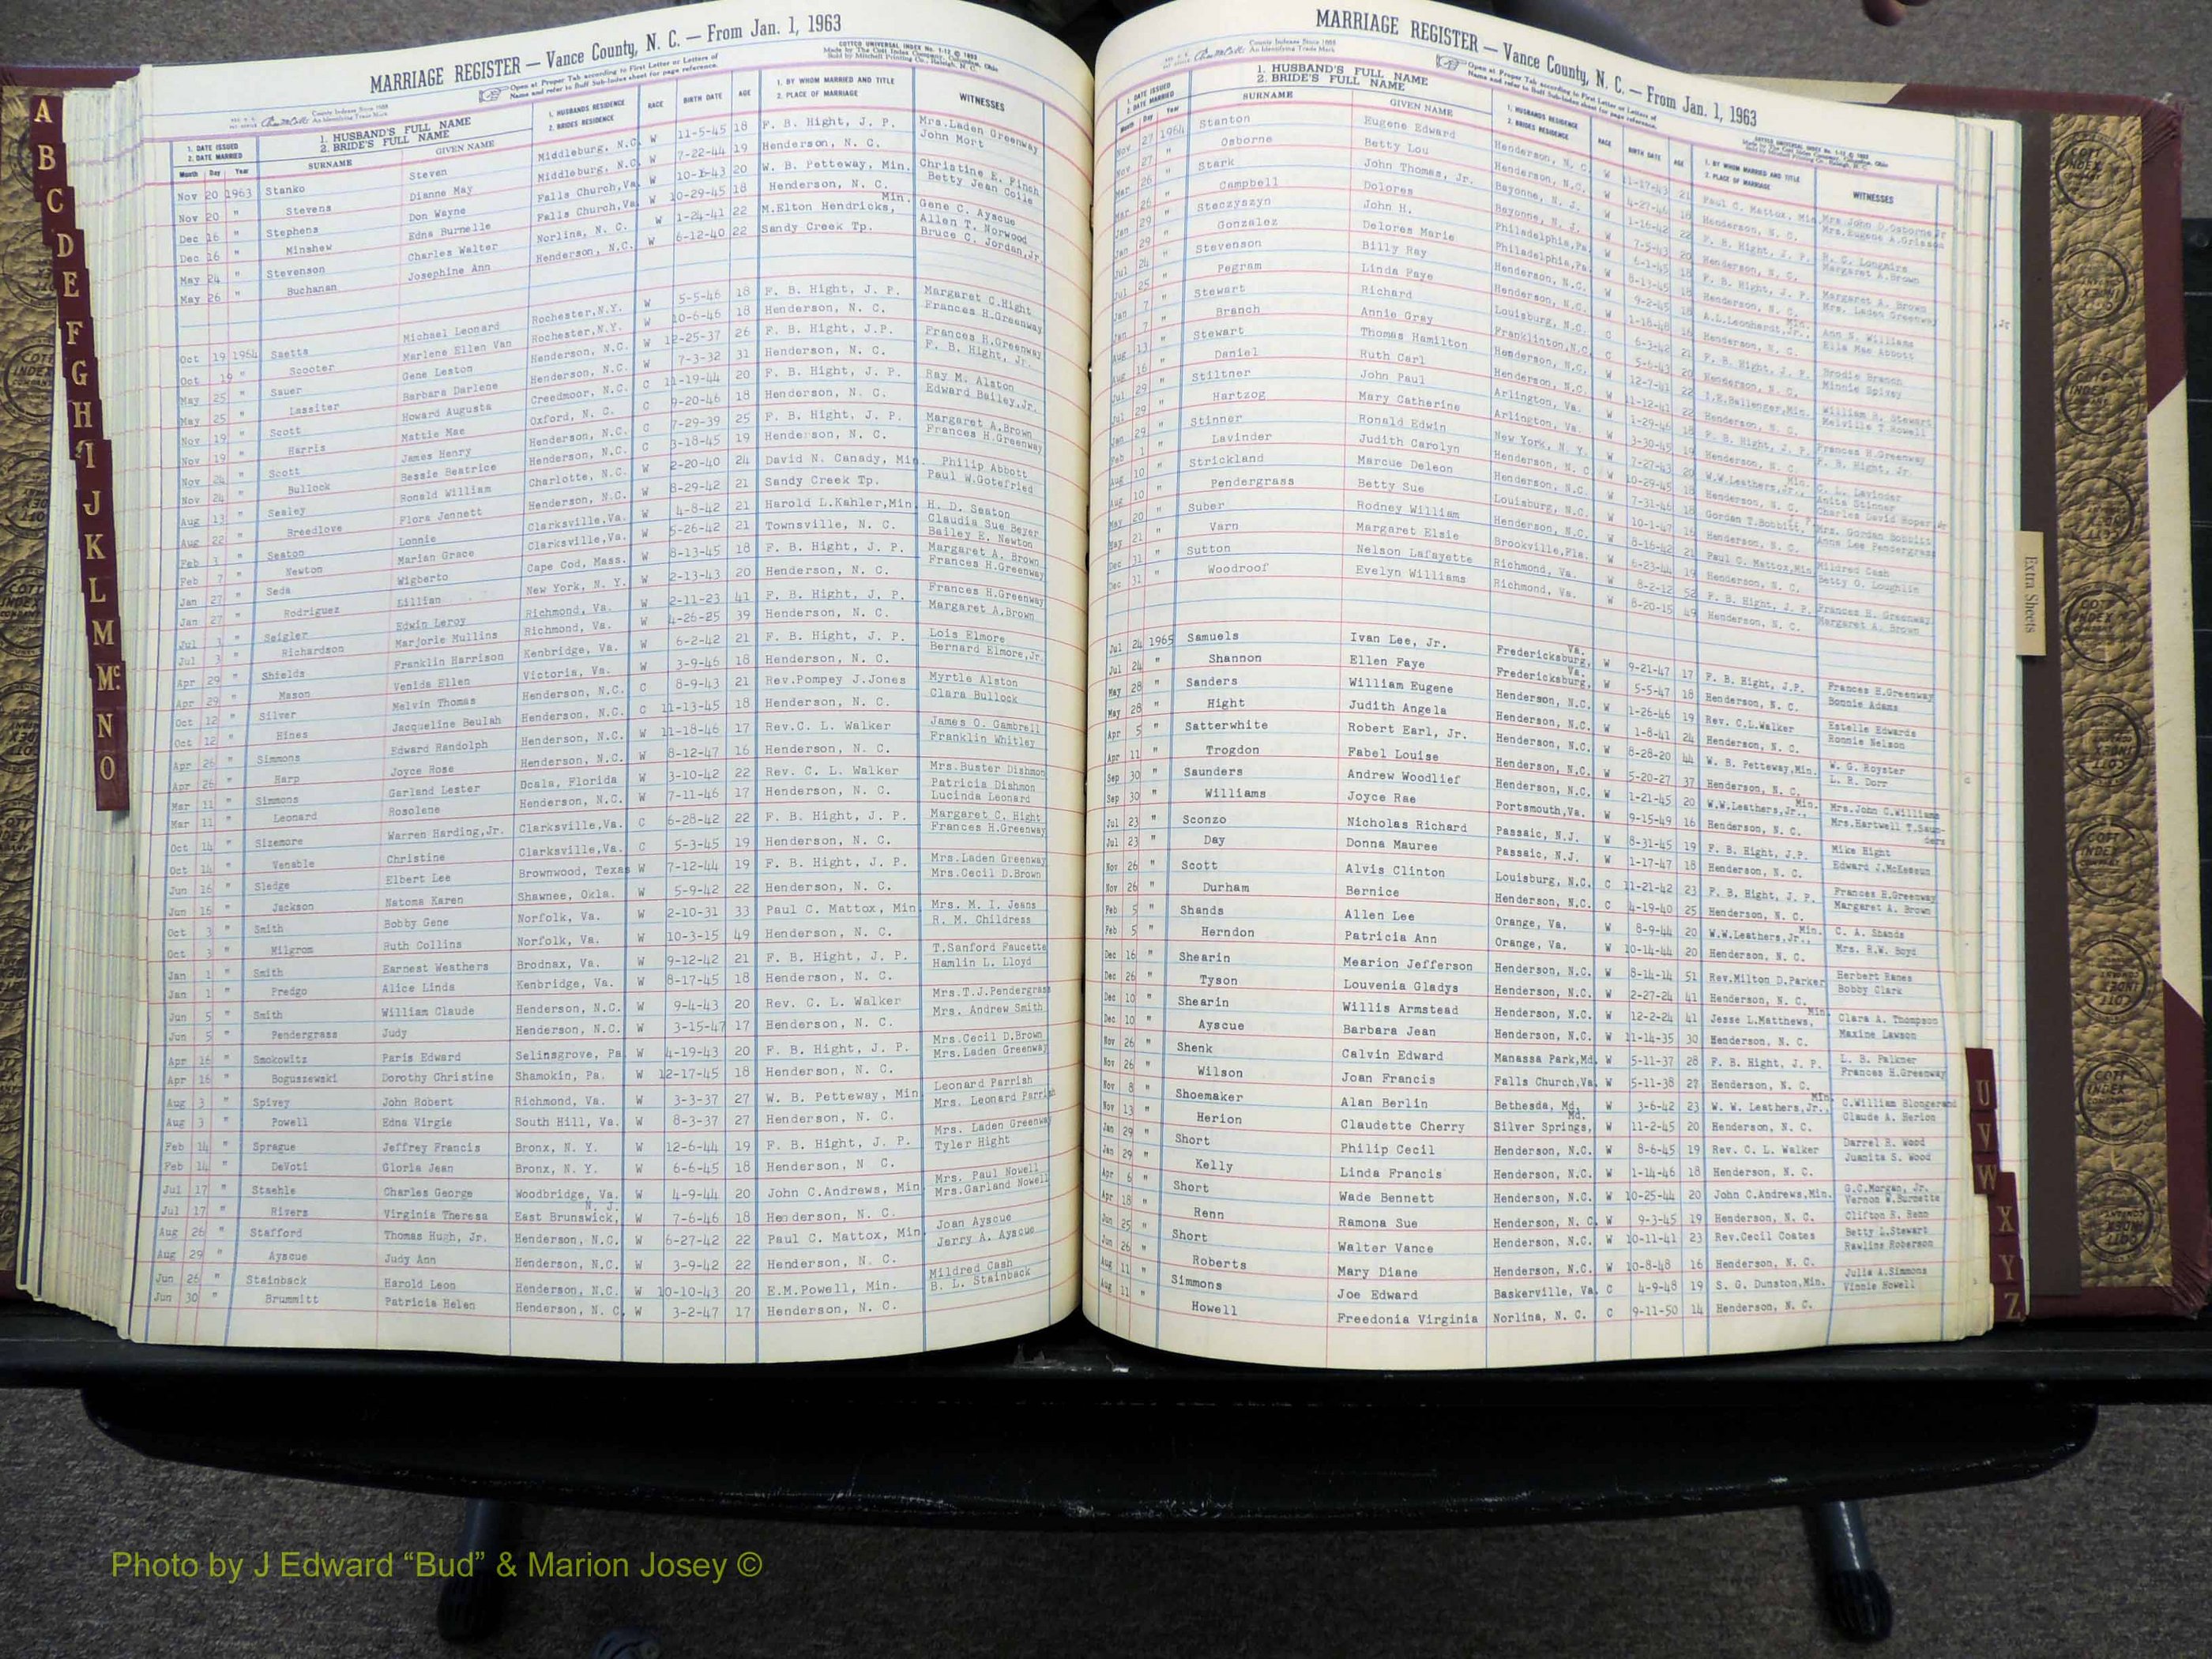 MARRIAGE REGISTER — Vance County, N. C. — From Jan. 1, 1963
COTTCO UNIVERSAL INDEX No. 1-12 © 1953
Made by The Cott Index Company, Columbus, Ohio
Sold by Mitchell Printing Co., Raleigh, N. C.
Open at Proper Tab according to First Letter or Letters of
Name and refer to Buff Sub-Index sheet for page reference.
County Indexes Since 1888
An Identifying Trade Mark
1. DATE ISSUED 2. DATE MARRIED 1. HUSBAND'S FULL NAME 2. BRIDE'S FULL NAME 1. HUSBANDS RESIDENCE 2. BRIDES RESIDENCE RACE BIRTH DATE AGE 1. BY WHOM MARRIED AND TITLE 2. PLACE OF MARRIAGE WITNESSES
Month Day Year SURNAME GIVEN NAME
Nov 20 1963 Stanko Steven Middleburg, N.C. W 11-5-45 18 F. B. Hight, J. P. Mrs.Laden Greenway
Nov 20 " Stevens Dianne May Middleburg, N.C. W 7-22-44 19 Henderson, N. C. John Mort
Dec 16 " Stephens Don Wayne Falls Church,Va. W 20 W. B. Petteway, Min. Christine E. Finch
Dec 16 " Minshew Edna Burnelle Falls Church,Va. W 10-29-45 18 Henderson, N. C. Betty Jean Coile
May 24 " Stevenson Charles Walter Norlina, N. C. W 1-24-41 22 M.Elton Hendricks, Min. Gene C. Ayscue
May 26 " Buchanan Josephine Ann Henderson, N.C. W 6-12-40 22 Sandy Creek Tp. Allen T. Norwood
Bruce C. Jordan,Jr.
Oct 19 1964 Saetta Michael Leonard Rochester,N.Y. W 5-5-46 18 F. B. Hight, J. P. Margaret C.Hight
Oct 19 " Scooter Marlene Ellen Van Rochester,N.Y. W 10-6-46 18 Henderson, N. C. Frances H.Greenway
May 25 " Sauer Gene Leston Henderson, N.C. W 12-25-37 26 F. B. Hight, J.P. Frances H.Greenway
May 25 " Lassiter Barbara Darlene Henderson, N.C. W 7-3-32 31 Henderson, N. C. F. B. Hight, Jr.
Nov 19 " Scott Howard Augusta Creedmoor, N.C. C 11-19-44 20 F. B. Hight, J. P. Ray M. Alston
Nov 19 " Harris Mattie Mae Oxford, N. C. C 9-20-46 18 Henderson, N. C. Edward Bailey,Jr.
Nov 24 " Scott James Henry Henderson, N.C. C 7-29-39 25 F. B. Hight, J. P. Margaret A.Brown
Nov 24 " Bullock Bessie Beatrice Henderson, N.C. C 3-18-45 19 Henderson, N. C. Frances H.Greenway
Aug 13 " Sealey Ronald William Charlotte, N.C. W 2-20-40 24 David N. Canady, Min Philip Abbott
Aug 22 " Breedlove Flora Jennett Henderson, N.C. W 8-29-42 21 Sandy Creek Tp. Paul W.Gotefried
Feb 3 " Seaton Lonnie Clarksville,Va. W 4-8-42 21 Harold L.Kahler,Min. H. D. Seaton
Feb 7 " Newton Marian Grace Clarksville,Va. W 5-26-42 21 Townsville, N. C. Claudia Sue Beyer
Bailey E. Newton
Jan 27 " Seda Wigberto Cape Cod, Mass. W 8-13-45 18 F. B. Hight, J. P. Margaret A. Brown
Jan 27 " Rodriguez Lillian New York, N. Y. W 2-13-43 20 Henderson, N. C. Frances H.Greenway
Jul 1 " Seigler Edwin Leroy Richmond, Va. W 2-11-23 41 F. B. Hight, J. P. Frances H.Greenway
Jul 3 " Richardson Marjorie Mullins Richmond, Va. W 4-26-25 39 Henderson, N. C. Margaret A.Brown
Apr 29 " Shields Franklin Harrison Kenbridge, Va. W 6-2-42 21 F. B. Hight, J. P. Lois Elmore
Apr 29 " Mason Venida Ellen Victoria, Va. W 3-9-46 18 Henderson, N. C. Bernard Elmore,Jr.
Oct 12 " Silver Melvin Thomas Henderson, N.C. C 8-9-43 21 Rev.Pompey J.Jones Myrtle Alston
Oct 12 " Hines Jacqueline Beulah Henderson, N.C. C 11-13-45 18 Henderson, N. C. Clara Bullock
Apr 26 " Simmons Edward Randolph Henderson, N.C. W 11-18-46 17 Rev.C. L. Walker James O. Gambrell
Apr 26 " Harp Joyce Rose Henderson, N.C. W 8-12-47 16 Henderson, N. C. Franklin Whitley
Mar 11 " Simmons Garland Lester Dcala, Florida W 3-10-42 22 Rev. C. L. Walker Mrs.Buster Dishmon
Mar 11 " Leonard Rosolene Henderson, N.C. W 7-11-46 17 Henderson, N. C. Patricia Dishmon
Lucinda Leonard
Oct 14 " Sizemore Warren Harding,Jr. Clarksville,Va. C 6-28-42 22 F. B. Hight, J. P. Margaret C. Hight
Oct 14 " Venable Christine Clarksville,Va. C 5-3-45 19 Henderson, N. C. Frances H.Greenway
Jun 16 " Sledge Elbert Lee Brownwood, Texas W 7-12-44 19 F. B. Hight, J. P. Mrs.Laden Greenway
Jun 16 " Jackson Natoma Karen Shawnee, Okla. W 5-9-42 22 Henderson, N. C. Mrs.Cecil D.Brown
Oct 3 " Smith Bobby Gene Norfolk, Va. W 2-10-31 33 Paul C. Mattox, Min Mrs. M. I. Jeans
Oct 3 " Milgrom Ruth Collins Norfolk, Va. W 10-3-15 49 Henderson, N. C. R. M. Childress
Jan 1 " Smith Earnest Weathers Brodnax, Va. W 9-12-42 21 F. B. Hight, J. P. T.Sanford Faucette
Jan 1 " Predgo Alice Linda Kenbridge, Va. W 8-17-45 18 Henderson, N. C. Hamlin L. Lloyd
Jun 5 " Smith William Claude Henderson, N.C. W 9-4-43 20 Rev. C. L. Walker Mrs.T.J.Pendergrass
Jun 5 " Pendergrass Judy Henderson, N.C. W 3-15-47 17 Henderson, N. C. Mrs. Andrew Smith
Apr 16 " Smokowitz Paris Edward Selinsgrove, Pa W 4-19-43 20 F. B. Hight, J. P. Mrs.Cecil D.Brown
Apr 16 " Boguszewski Dorothy Christine Shamokin, Pa. W 12-17-45 18 Henderson, N. C. Mrs.Laden Greenway
Aug 3 " Spivey John Robert Richmond, Va. W 3-3-37 27 W. B. Petteway, Min Leonard Parrish
Aug 3 " Powell Edna Virgie South Hill, Va. W 8-3-37 27 Henderson, N. C. Mrs. Leonard Parrish
Feb 14 " Sprague Jeffrey Francis Bronx, N. Y. W 12-6-44 19 F. B. Hight, J. P. Mrs. Laden Greenway
Feb 14 " DeVoti Gloria Jean Bronx, N. Y. W 6-6-45 18 Henderson, N C. Tyler Hight
Jul 17 " Staehle Charles George Woodbridge, Va. W 4-9-44 20 John C.Andrews, Min Mrs. Paul Nowell
Jul 17 " Rivers Virginia Theresa East Brunswick, N. J. W 7-6-46 18 Henderson, N. C. Mrs.Garland Nowell
Aug 26 " Stafford Thomas Hugh, Jr. Henderson, N.C. W 6-27-42 22 Paul C. Mattox, Min. Joan Ayscue
Aug 29 " Ayscue Judy Ann Henderson, N.C. W 3-9-42 22 Henderson, N. C. Jerry A. Ayscue
Jun 26 " Stainback Harold Leon Henderson, N.C. W 10-10-43 20 E.M.Powell, Min. Mildred Cash
Jun 30 " Brummitt Patricia Helen Henderson, N. C. W 3-2-47 17 Henderson, N. C. B. L. Stainback
MARRIAGE REGISTER — Vance County, N. C. — From Jan. 1, 1963
County Indexes Since 1888
An Identifying Trade Mark
Open at Proper Tab according to First Letter or Letters of
Name and refer to Buff Sub-Index sheet for page reference.
1. DATE ISSUED 2. DATE MARRIED 1. HUSBAND'S FULL NAME 2. BRIDE'S FULL NAME 1. HUSBANDS RESIDENCE 2. BRIDES RESIDENCE RACE BIRTH DATE AGE 1. BY WHOM MARRIED AND TITLE 2. PLACE OF MARRIAGE WITNESSES
Month Day Year SURNAME GIVEN NAME
Nov 27 1964 Stanton Eugene Edward Henderson, N. C. W 11-17-43 21 Paul C. Mattox, Min Mrs John D.Osborne Jr
Nov 27 " Osborne Betty Lou Henderson, N.C. W 4-27-46 18 Henderson, N. C. Mrs.Eugene A.Grissom
Mar 26 " Stark John Thomas, Jr. Bayonne, N. J. W 1-16-42 22 F. B. Hight, J. P. R. C. Longmire
Mar 26 " Campbell Dolores Bayonne, N. J. W 7-5-43 20 Henderson, N. C. Margaret A.Brown
Jan 29 " Stenzyszyn John H. Philadelphia,Pa. W 6-1-45 18 F. B. Hight, J. P. Margaret A. Brown
Jan 29 " Gonzalez Delores Marie Philadelphia,Pa. W 8-13-45 18 Henderson, N. C. Mrs. Laden Greenway
Jul 24 " Stevenson Billy Ray Henderson, N.C. W 9-2-45 18 A.L.Leonhardt,Jr., Min. Ann N. Williams
Jul 25 " Pegram Linda Faye Henderson, N.C. W 1-16-48 16 Henderson, N. C. Ella Mae Abbott
Jan 7 " Stewart Richard Louisburg, N.C. C 6-3-42 21 F. B. Hight, J. P. Brodie Branch
Jan 7 " Branch Annie Gray Franklinton,N.C. C 5-6-43 20 Henderson, N. C. Minnie Spivey
Aug 13 " Stewart Thomas Hamilton Henderson, N.C. W 12-7-41 22 I.E.Ballenger,Min. William R. Stewart
Aug 16 " Daniel Ruth Carl Henderson, N.C. W 11-12-41 22 Henderson, N. C. Melville T Rowell
Jul 29 " Stiltner John Paul Arlington, Va. W 1-29-46 18 F. B. Hight, J. P. Frances H.Greenway
Jul 29 " Hartzog Mary Catherine Arlington, Va. W 3-30-45 19 Henderson, N. C. F. B. Hight, Jr.
Jan 29 " Stinner Ronald Edwin New York, N. Y. W 7-27-43 20 W.W.Leathers,Jr., Min. C. L. Lavinder
Feb 1 " Lavinder Judith Carolyn Henderson, N. C W 10-29-45 18 Henderson, N. C. Anita Stinner
Aug 10 " Strickland Marcue Deleon Henderson, N.C. W 7-31-46 18 Gordon T.Bobbitt, Charles David Roper Jr
Aug 10 " Pendergrass Betty Sue Louisburg, N.C. W 10-1-47 16 Henderson, N. C. Mrs. Gordon Bobbitt
Anna Lee Pendergrass
May 20 " Suber Rodney William Henderson, N.C. W 8-16-42 21 Paul C. Mattox,Min Mildred Cash
May 21 " Varn Margaret Elsie Brookville,Fla. W 6-23-44 19 Henderson, N. C. Betty O. Loughlin
Dec 31 " Sutton Nelson Lafayette Richmond, Va. W 8-2-12 52 F. B. Hight, J. P. Frances H. Greenway
Dec 31 " Woodroof Evelyn Williams Richmond, Va. W 8-20-15 49 Henderson, N. C. Margaret A. Brown
Jul 24 1965 Samuels Ivan Lee, Jr. Fredericksburg, Va. W 9-21-47 17 F. B. Hight, J.P. Frances H.Greenway
Jul 24 " Shannon Ellen Faye Fredericksburg, Va. W 5-5-47 18 Henderson, N. C. Bonnie Adams
May 28 " Sanders William Eugene Henderson, N.C. W 1-26-46 19 Rev. C.L.Walker Estelle Edwards
May 28 " Hight Judith Angela Henderson, N.C. W 1-8-41 24 Henderson, N. C. Ronnie Nelson
Apr 5 " Satterwhite Robert Earl, Jr. Henderson, N.C. W 8-28-20 44 W. B. Petteway,Min. W. G. Royster
Apr 11 " Trogdon Fabel Louise Henderson, N.C. W 5-20-27 37 Henderson, N. C. L. R. Dorr
Sep 30 " Saunders Andrew Woodlief Henderson, N.C. W 1-21-45 20 W.W.Leathers,Jr., Min. Mrs.John C.Williams
Sep 30 " Williams Joyce Rae Portsmouth,Va. W 9-15-49 16 Henderson, N. C. Mrs.Hartwell T.Saun-
ders
Jul 23 " Sconzo Nicholas Richard Passaic, N.J. W 8-31-45 19 F. B. Hight, J.P. Mike Hight
Jul 23 " Day Donna Mauree Passaic, N.J. W 1-17-47 18 Henderson, N. C. Edward J.McKeesun
Nov 26 " Scott Alvis Clinton Louisburg, N.C. C 11-21-42 23 F. B. Hight, J. P. Frances H.Greenway
Nov 26 " Durham Bernice Henderson, N.C. C 4-19-40 25 Henderson, N. C. Margaret A. Brown
Feb 5 " Shands Allen Lee Orange, Va. W 8-9-44 20 W.W.Leathers,Jr., Min. C. A. Shands
Feb 5 " Herndon Patricia Ann Orange, Va. W 10-14-44 20 Henderson, N. C. Mrs. R.W. Boyd
Dec 16 " Shearin Mearion Jefferson Henderson, N.C. W 8-14-14 51 Rev.Milton D.Parker Herbert Ranes
Dec 26 " Tyson Louvenia Gladys Henderson, N.C. W 2-27-24 41 Henderson, N. C. Bobby Clark
Dec 10 " Shearin Willis Armstead Henderson, N.C. W 12-2-24 41 Jesse L.Matthews, Min. Clara A. Thompson
Dec 10 " Ayscue Barbara Jean Henderson, N.C. W 11-14-35 30 Henderson, N. C. Maxine Lawson
Nov 26 " Shenk Calvin Edward Manassa Park,Md. W 5-11-37 28 F. B. Hight, J. P. L. B. Falkner
Nov 26 " Wilson Joan Francis Falls Church,Va. W 5-11-38 27 Henderson, N. C. Frances H.Greenway
Nov 8 " Shoemaker Alan Berlin Bethesda, Md. W 3-6-42 23 W. W. Leathers,Jr., Min. C.William Slongerand
Nov 13 " Herion Claudette Cherry Silver Springs, Md. W 11-2-45 20 Henderson, N. C. Claude A. Herion
Jan 29 " Short Philip Cecil Henderson, N.C. W 8-6-45 19 Rev. C. L. Walker Darrel R. Wood
Jan 29 " Kelly Linda Francis Henderson, N.C. W 1-14-46 18 Henderson, N. C. Juanita S. Wood
Apr 6 " Short Wade Bennett Henderson, N.C. W 10-25-44 20 John C.Andrews,Min. G.C.Morgan, Jr.
Apr 18 " Renn Ramona Sue Henderson, N. C. W 9-3-45 19 Henderson, N. C. Vernon W.Burnette
Clifton R. Renn
Jun 25 " Short Walter Vance Henderson, N.C. W 10-11-41 23 Rev.Cecil Coates Betty L.Stewart
Jun 26 " Roberts Mary Diane Henderson, N.C. W 10-8-48 16 Henderson, N. C. Rawlins Roberson
Aug 11 " Simmons Joe Edward Baskerville, Va. C 4-9-48 19 S. G. Dunston,Min. Julia A.Simmons
Aug 11 " Howell Freedonia Virginia Norlina, N. C. C 9-11-50 14 Henderson, N. C. Vinnie Howell
A
B
C
D
E
F
G
H
I
J
K
L
M
Mc.
N
O
Extra Sheets
U
V
W
X
Y
Z
COTT INDEX COMPANY
Photo by J Edward “Bud” & Marion Josey ©